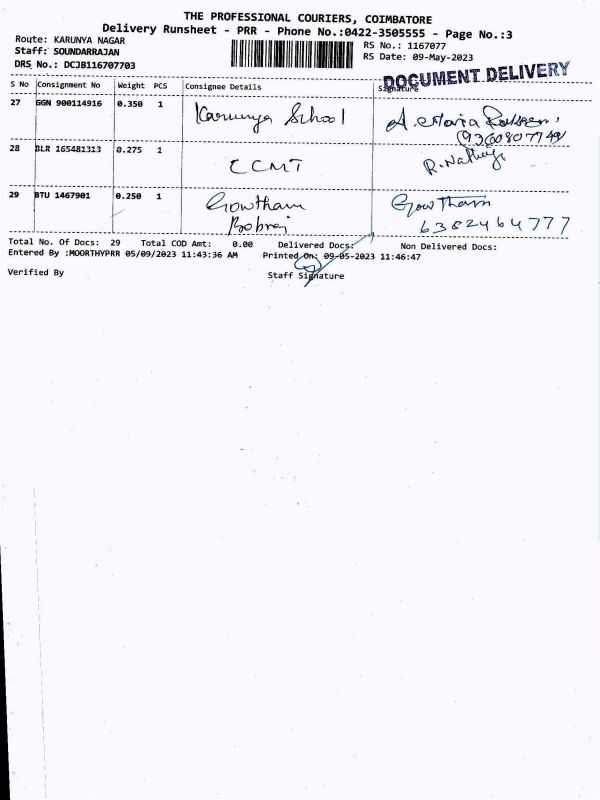 THE PROFESSIONAL COURIERS, COIMBATORE
Delivery Runsheet - PRR - Phone No.:0422-3505555 - Page No.:3
Route: KARUNYA NAGAR
Staff: SOUNDARRAJAN
DRS No.: DCJB116707703
RS No.: 1167077
RS Date: 09-May-2023
DOCUMENT DELIVERY
S No Consignment No Weight PCS Consignee Details Signature
27 GGN 900114916 0.350 1 Karunya School A.
28 BLR 165481313 0.275 1 CCMT R.
29 BTU 1467901 0.250 1 Gowtham Gowtham
6382464777
Total No. Of Docs: 29 Total COD Amt: 0.00 Delivered Docs: Non Delivered Docs:
Entered By :MOORTHYPRR 05/09/2023 11:43:36 AM Printed On: 09-05-2023 11:46:47
Verified By Staff Signature